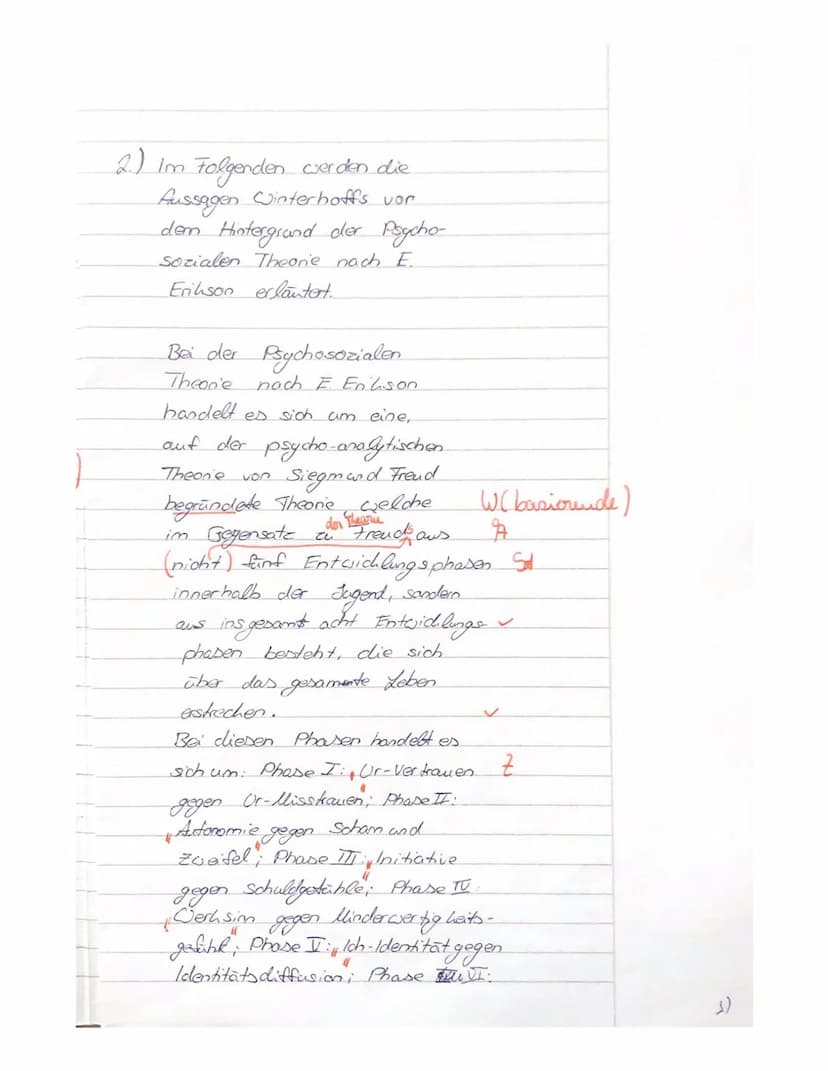 2.) Im Folgenden werden die
Aussagen Winterhoffs vor
dem Hintergrund der Psycho-
sozialen Theorie nach E.
Erikson erläutert.
Bei der Psychosozialen
Theorie nach E. Erikson
handelt es sich um eine,
auf der psycho-analytischen
Theorie von Siegmund Freud
begründete Theorie, welche W (basierende)
der Theorie
im Gegensatz zu Freuds aus
(nicht) fünf Entwicklungsphasen
innerhalb der Jugend, sondern
aus insgesamt acht Entwicklungs- ✓
phasen besteht, die sich
über das gesamte Leben
erstrecken. ✓
Bei diesen Phasen handelt es
sich um: Phase I: „Ur-Vertrauen Z
gegen Ur-Misstrauen"; Phase II:
„Autonomie gegen Scham und
Zweifel"; Phase III: „Initiative
gegen Schuldgefühle"; Phase IV:
„Werksinn gegen Minderwertigkeits-
gefühl"; Phase V: „Ich-Identität gegen
Identitätsdiffusion"; Phase VI: